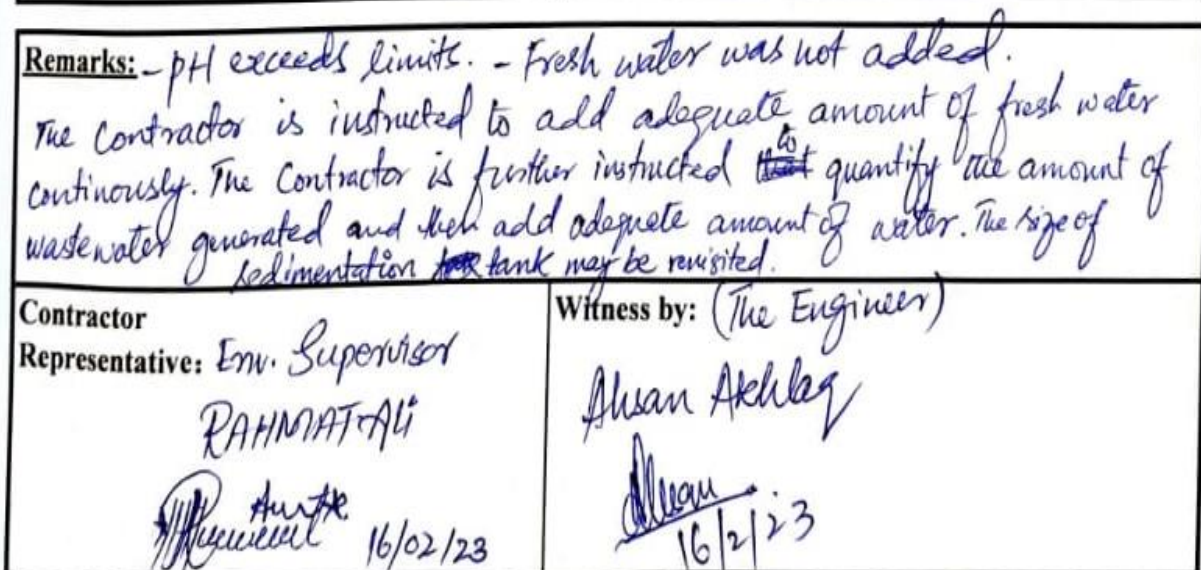 Remarks: - pH exceeds limits. - Fresh water was not added.
The Contractor is instructed to add adequate amount of fresh water
continously. The Contractor is further instructed to quantify the amount of
wastewater generated and then add adequate amount of water. The size of
sedimentation tank may be revisited.
Contractor
Representative: Env. Supervisor
RAHMAT ALI
16/02/23
Witness by: (The Engineer)
Ahsan Akhlaq
Ahsan
16/2/23